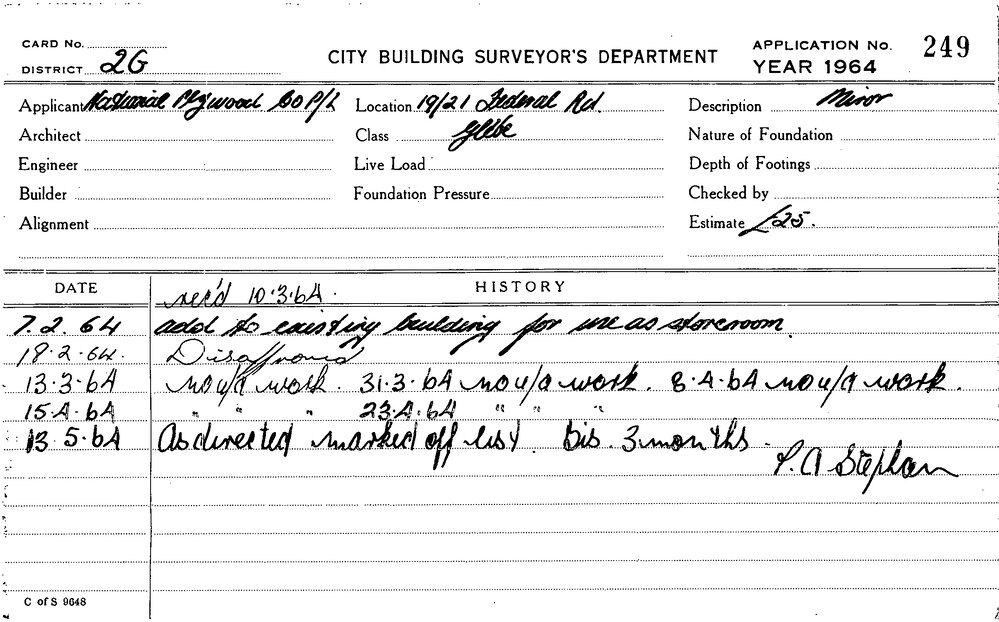 CARD No.
CITY BUILDING SURVEYOR'S DEPARTMENT
APPLICATION No. 249
DISTRICT 2G
YEAR 1964
Applicant National Plywood Co P/L
Location 19/21 Federal Rd.
Description Minor
Architect
Class Glebe
Nature of Foundation
Engineer
Live Load
Depth of Footings
Builder
Foundation Pressure
Checked by
Alignment
Estimate £25.
DATE
HISTORY
rec'd 10.3.64.
7.2.64 add to existing building for use as storeroom.
18.2.64. Disapproved
13.3.64 no u/a work. 31.3.64 no u/a work. 8.4.64 no u/a work.
15.4.64 " " " 23.4.64 " " "
13.5.64 As directed marked off list. bis. 3 months.
P. A Stephan
C of S 9648